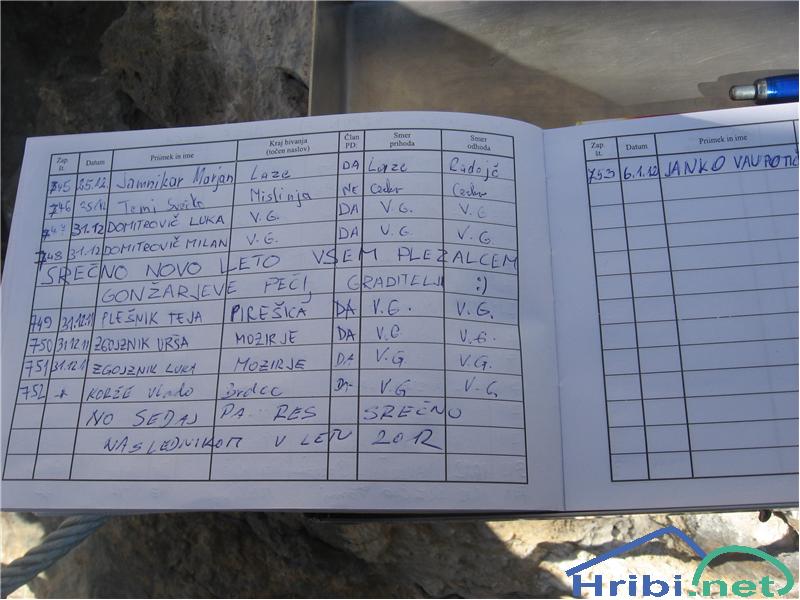 Zap. št. Datum Priimek in ime Kraj bivanja (točen naslov) Član PD: Smer prihoda Smer odhoda
745 25.12. Jamnikar Marjan Laze DA Laze Radojč
746 Temi Mislinja NE
747 31.12 DOMITROVIČ LUKA V.G. DA V.G. V.G.
748 31.12 DOMITROVIČ MILAN V.G. DA V.G. V.G.
SREČNO NOVO LETO VSEM PLEZALCEM
GONŽARJEVE PEČI, GRADITELJI :)
749 31.12.11 PLEŠNIK TEJA PIREŠICA DA V.G. V.G.
750 31.12.11 ZGOJZNIK URŠA MOZIRJE DA V.G. V.G.
751 31.12.11 ZGOJZNIK LUKA MOZIRJE DA V.G. V.G.
752 KORŽE Vlado Brdce DA V.G V.G.
NO SEDAJ PA RES SREČNO
NASLEDNIKOM V LETU 2012
Zap. št. Datum Priimek in ime
753 6.1.12 JANKO VAUPOTIČ
Hribi.net